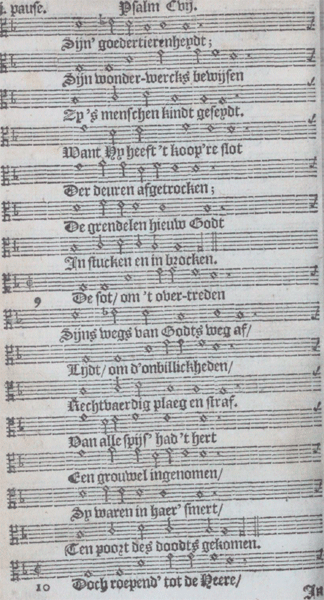 j. pause. Psalm Cvij.
Sijn' goedertierenheydt;
Sijn wonder-wercks bewijsen
Zy 's menschen kindt geseydt.
Want Hy heeft 't koop're slot
Der deuren afgetrocken;
De grendelen hieuw Godt
In stucken en in brocken.
9 De sot/ om 't over-treden
Sijns wegs van Godts weg af/
Lijdt/ om d'onbillickheden/
Rechtvaerdig plaeg en straf.
Van alle spijs' had 't hert
Een grouwel ingenomen/
Sy waren in haer' smert/
Een poort des doodts gekomen.
10 Doch roepend' tot de Heere/
In